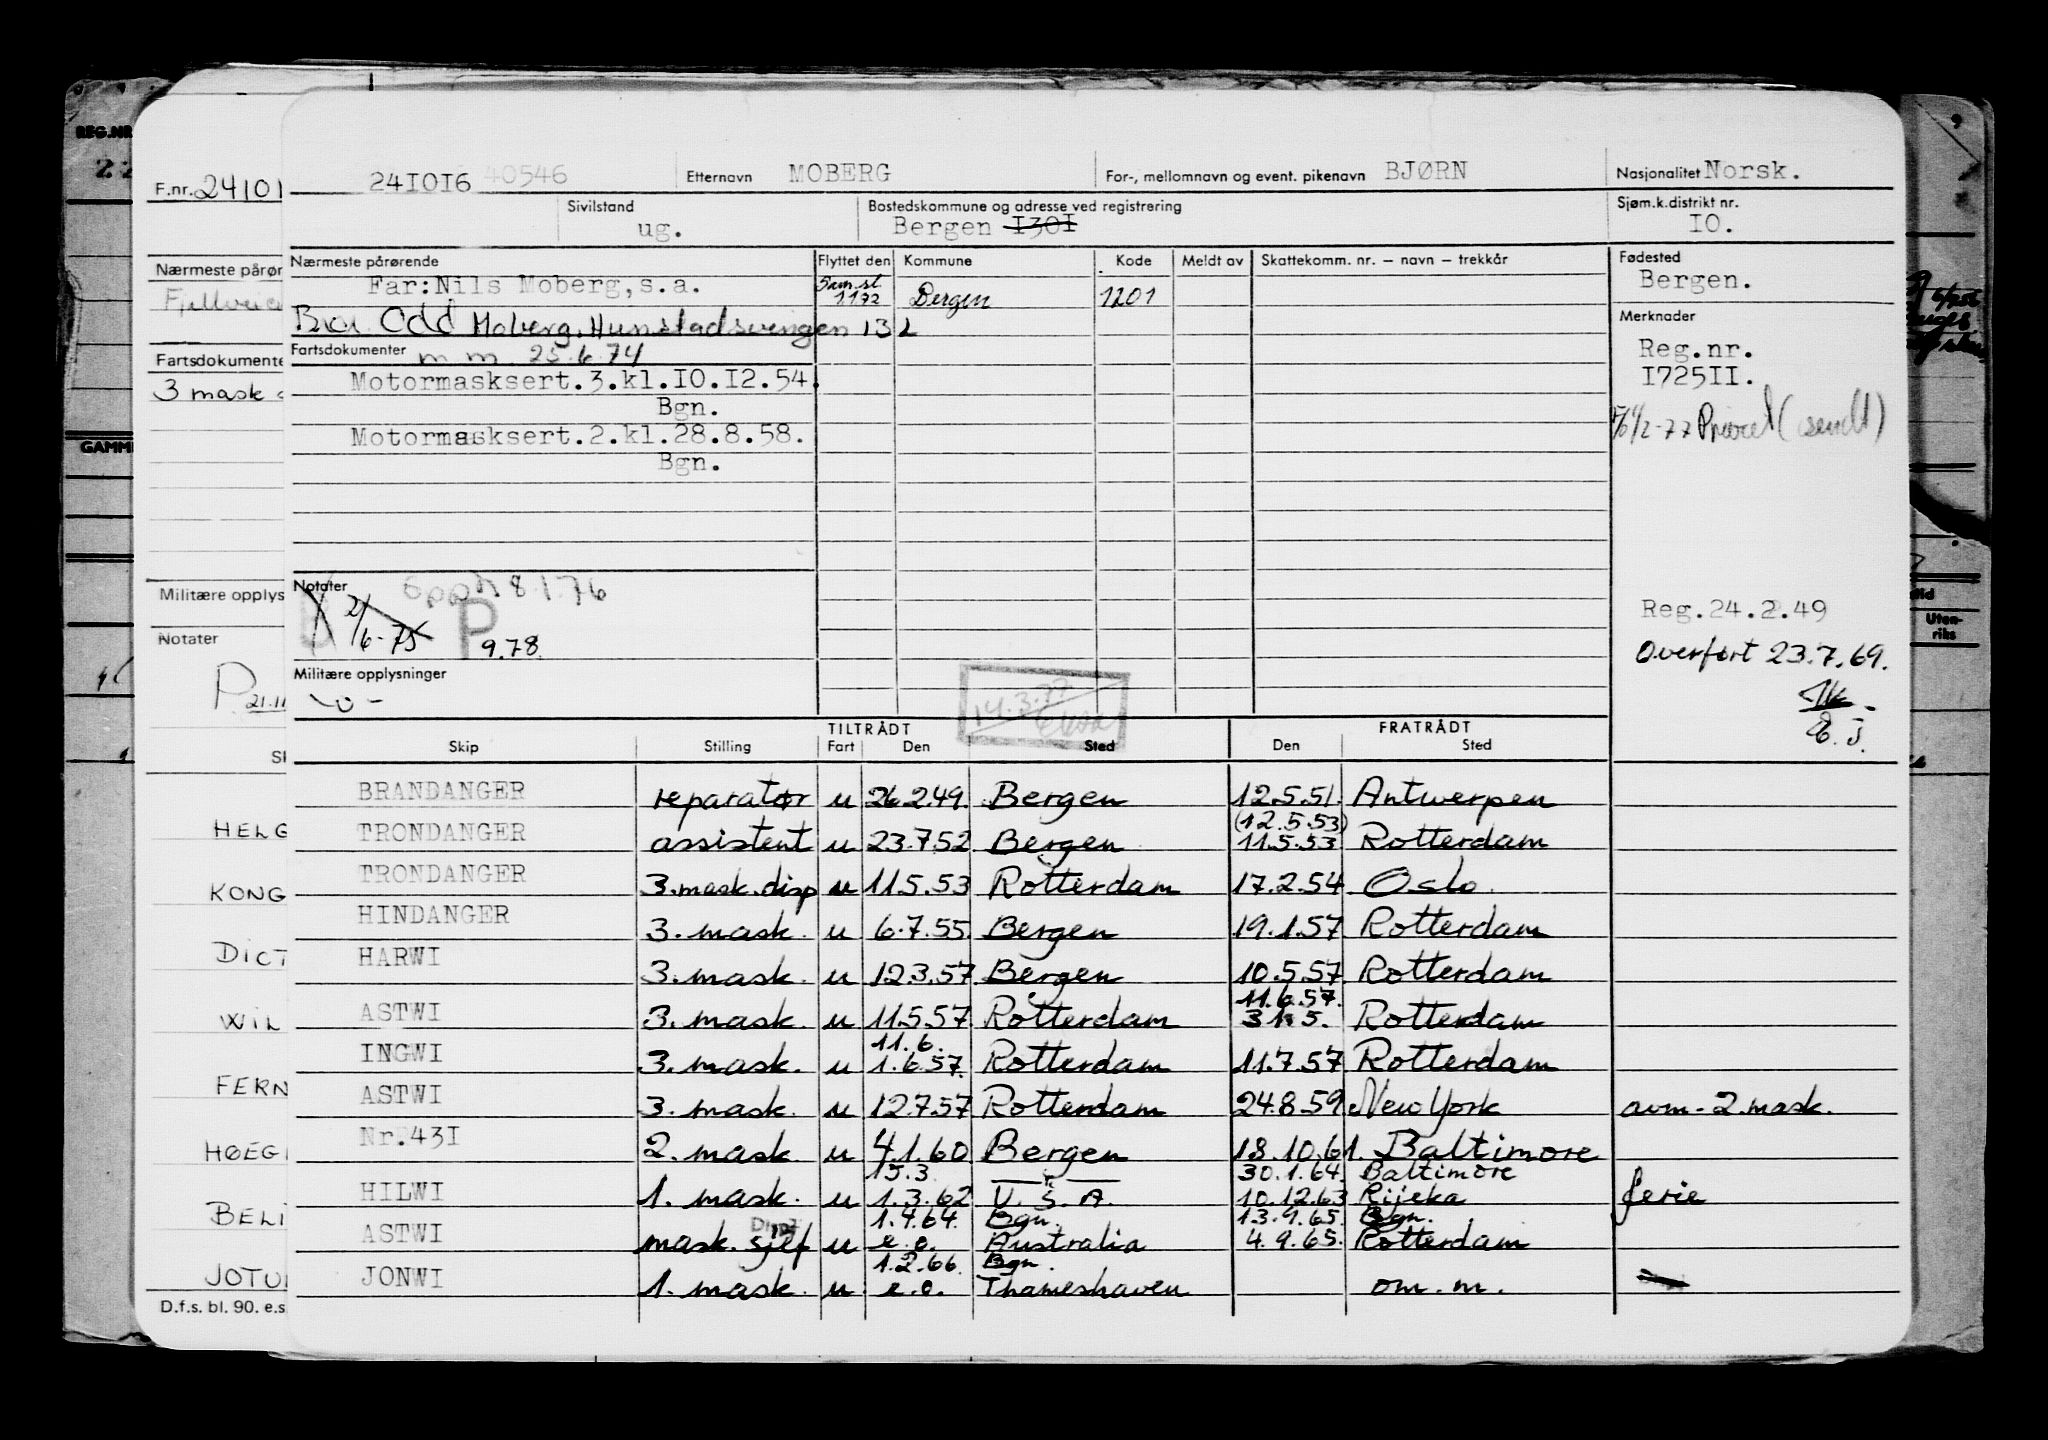 REG.NR
F.nr. 24101
241016 40546
Etternavn MOBERG
For-, mellomnavn og event. pikenavn BJØRN
Nasjonalitet Norsk.
Sivilstand ug.
Bostedskommune og adresse ved registrering
Bergen 1301
Sjøm.k.distrikt nr.
IO.
Nærmeste pårørende
Far:Nils Moberg,s.a.
Bror Odd Moberg, Hunstadsvingen 13 L
Flyttet den Kommune Kode Meldt av Skattekomm. nr. – navn – trekkår
Sam.sl.
1.1.72 Bergen 1201
Fødested
Bergen.
Merknader
Reg.nr.
I725II.
Privat (sendt)
Reg.24.2.49
Overført 23.7.69.
E.J.
Fartsdokumenter m.m. 25.6.74
Motormasksert.3.kl.IO.I2.54.
Bgn.
Motormasksert.2.kl.28.8.58.
Bgn.
Notater Opph 8.1.76
2/6-75 P 9.78.
Militære opplysninger
14.3.77
TILTRÅDT FRATRÅDT
Skip Stilling Fart Den Sted Den Sted
BRANDANGER reparatør u 26.2.49. Bergen 12.5.51. Antwerpen
(12.5.53)
TRONDANGER assistent u 23.7.52 Bergen 11.5.53 Rotterdam
TRONDANGER 3.mask.disp u 11.5.53 Rotterdam 17.2.54 Oslo
HINDANGER 3. mask. u 6.7.55 Bergen 19.1.57 Rotterdam
HARWI 3. mask. u 12.3.57 Bergen 10.5.57 Rotterdam
11.6.57.
ASTWI 3. mask. u 11.5.57 Rotterdam 31.5. Rotterdam
11.6.
INGWI 3. mask. u 1.6.57. Rotterdam 11.7.57 Rotterdam
ASTWI 3. mask. u 12.7.57 Rotterdam 24.8.59 New York avm-2.mask.
Nr.43I 2. mask. u 4.1.60 Bergen 18.10.61. Baltimore
15.3 30.1.64. Baltimore
HILWI 1. mask. u 1.3.62 U.S.A. 10.12.63 Rijeka ferie
Disp. 1.4.64. Bgn. 13.9.65. Bgn.
ASTWI mask. sjef u e.o. Australia 4.9.65. Rotterdam
1.2.66. Bgn.
JONWI 1. mask. u e.o. Thameshaven om.m.
Nærmeste pårør
Fjellveie
Fartsdokumente
3 mask
GAMM
Militære opplys
Notater
P. 21.11
Sk
HELG
KONG
DICT
WIL
FERN
HØEG
BELI
JOTU
D.f.s. bl. 90. e.s.
9
Uten-
riks